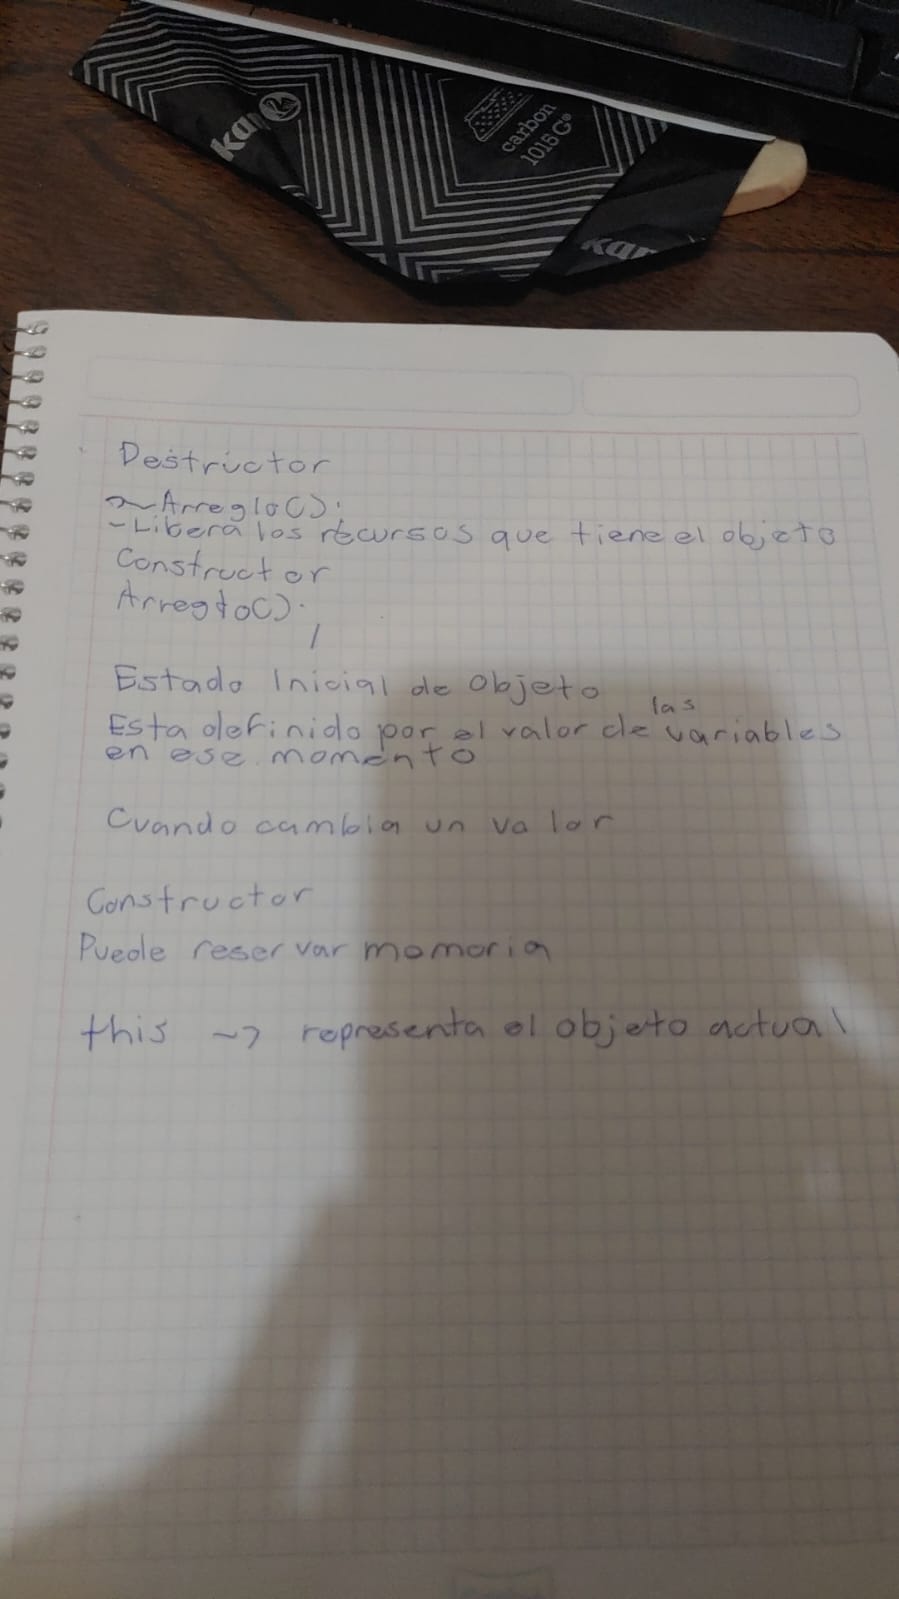 kar
carbon
1015 G®
kar
Destructor
~Arreglo();
-Libera los recursos que tiene el objeto
Constructor
Arreglo();
Estado Inicial de Objeto
las
Esta definido por el valor de variables
en ese momento
Cuando cambia un valor
Constructor
Puede reservar memoria
this ~> representa el objeto actual